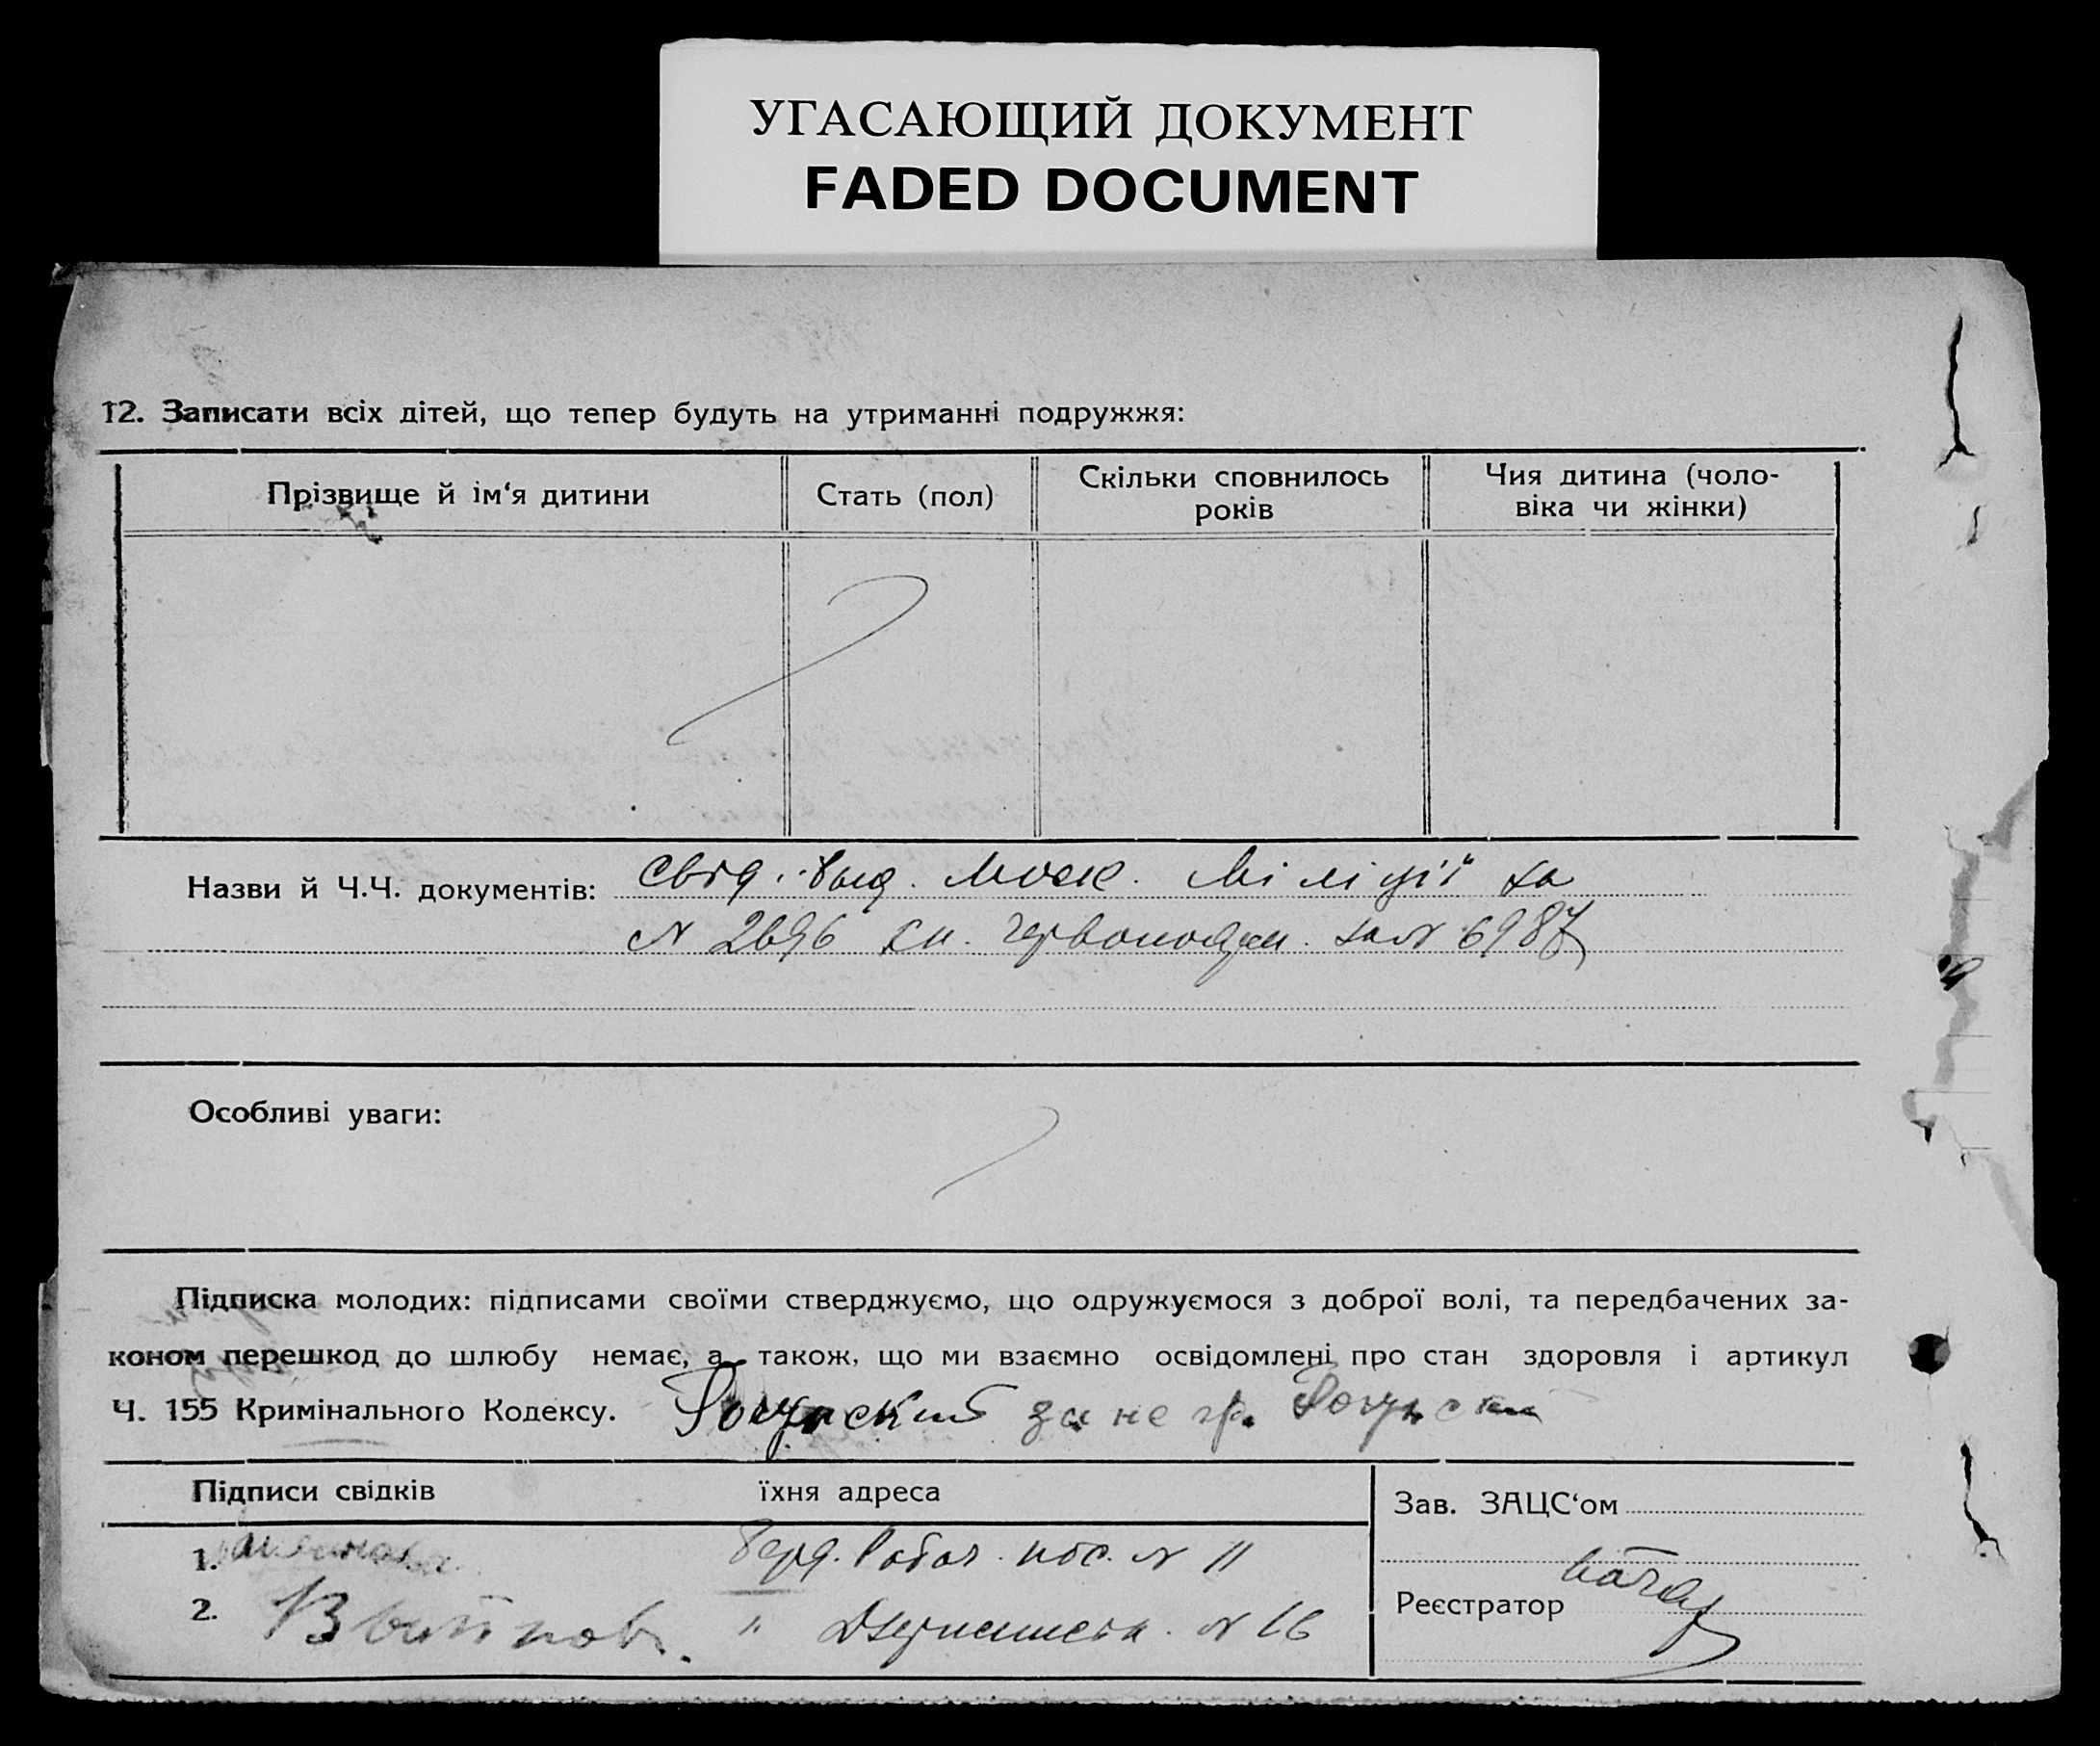 УГАСАЮЩИЙ ДОКУМЕНТ
FADED DOCUMENT
12. Записати всіх дітей, що тепер будуть на утриманні подружжя:
Прізвище й ім‘я дитини
Стать (пол)
Скільки сповнилось
років
Чия дитина (чоло-
віка чи жінки)
Назви й Ч.Ч. документів: Свід. выд. Моск. Міліції за
N 2696 кн. червоноарм. за N 6987
Особливі уваги:
Підписка молодих: підписами своїми стверджуємо, що одружуємося з доброї волі, та передбачених за-
коном перешкод до шлюбу немає, а також, що ми взаємно освідомлені про стан здоровля і артикул
Ч. 155 Кримінального Кодексу. за не гр.
Підписи свідків
їхня адреса
Зав. ЗАЦС‘ом
1.
Берд. Робоч. пос. N 11
2.
" N 16
Реєстратор